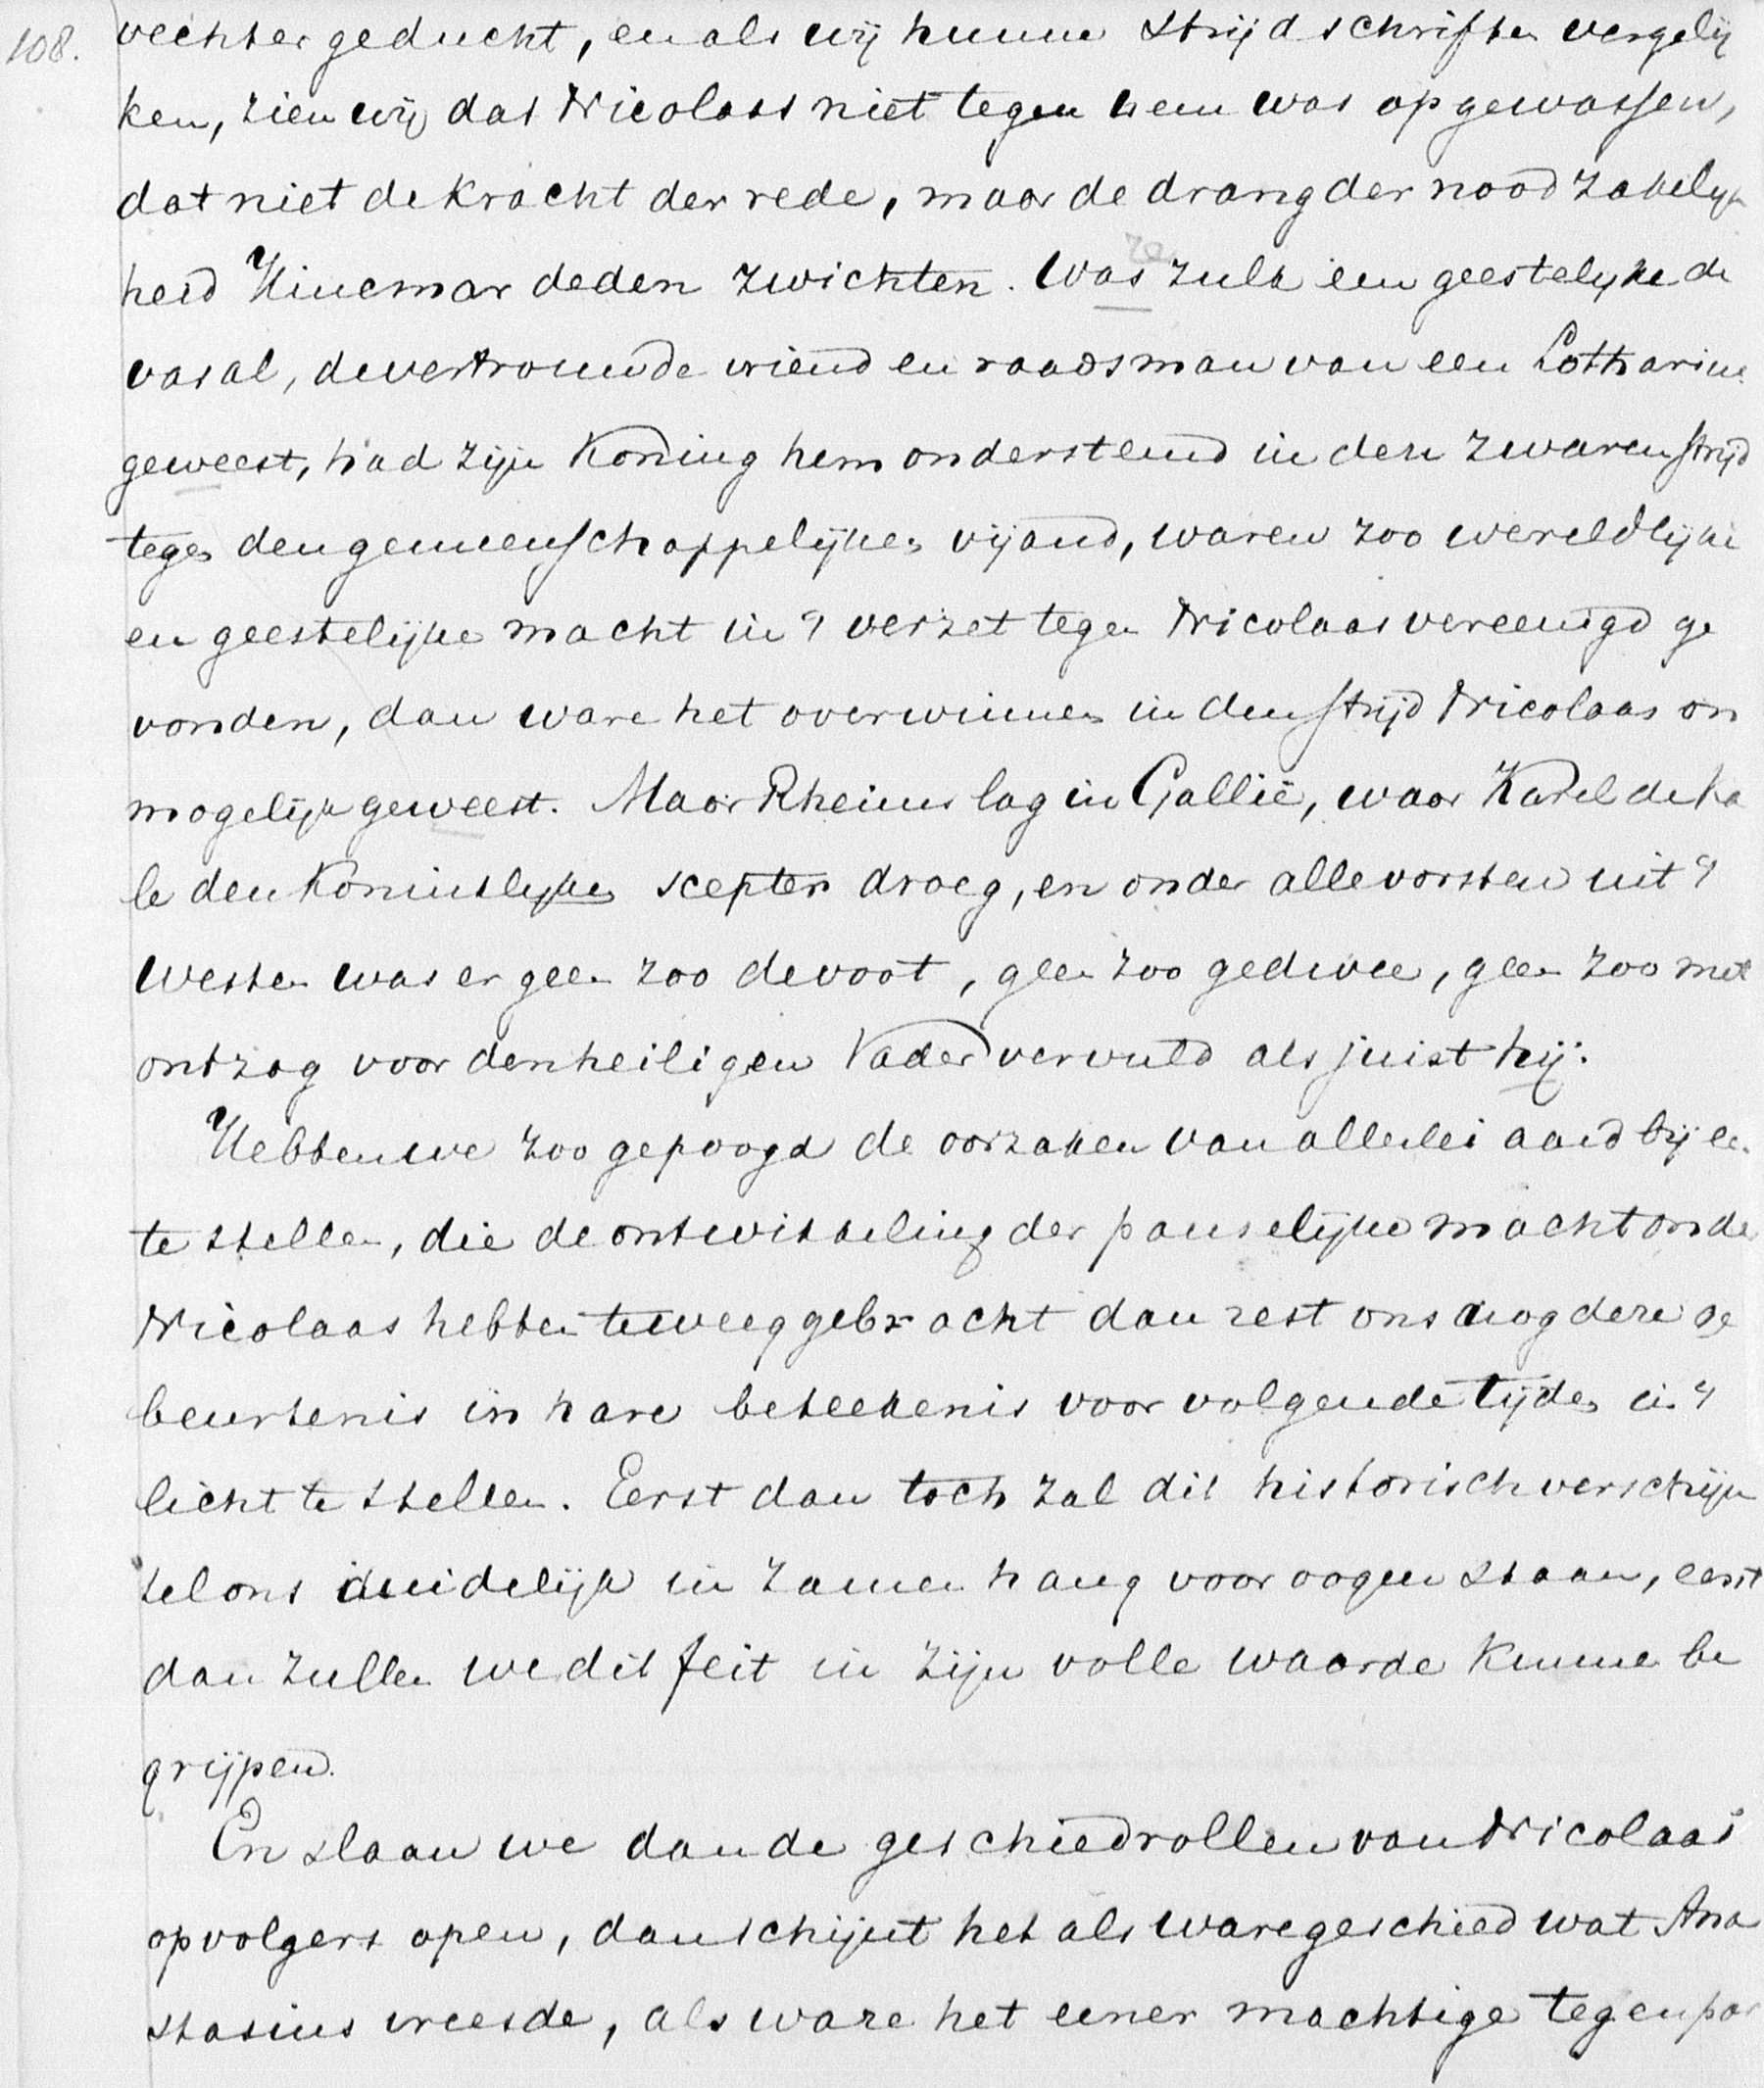 108.
vechter geducht, en als wij hunne strijdschriften vergelij
ken, zien wij dat Nicolaas niet tegen hem was opgewassen,
dat niet de kracht der rede, maar de drang der noodzakelijk
heid Hincmar deden zwichten. Was zulk een geestelijke de
vasal, de vertrouwde vriend en raadsman van een Lotharius
geweest, had zijn Koning hem ondersteund in den zwaren strijd
tegen den gemeenschappelijken vijand, waren zoo wereldlijke
en geestelijke macht in 't verzet tegen Nicolaas vereenigd ge
vonden, dan ware het overwinnen in den strijd Nicolaas on
mogelijk geweest. Maar Rheims lag in Gallië, waar Karel de Ka
le den Koninklijken scepter droeg, en onder alle vorsten uit 't
Westen was er geen zoo devoot, geen zoo gedwee, geen zoo met
ontzag voor den heiligen Vader vervuld als juist hij.
Hebben we zoo gepoogd de oorzaken van allerlei aard bijeen
te stellen, die de ontwikkeling der pauselijke macht onder
Nicolaas hebben teweeggebracht dan rest ons nog deze ge
beurtenis in hare beteekenis voor volgende tijden in 't
licht te stellen. Eerst dan toch zal dit historisch verschijn
sel ons duidelijk in zamenhang voor oogen staan, eerst
dan zullen we dit feit in zijn volle waarde kunnen be
grijpen.
En slaan we dan de geschiedrollen van Nicolaas
opvolgers open, dan schijnt het als ware geschied wat Ana
stasius vreesde, als ware het eener machtige tegenpar